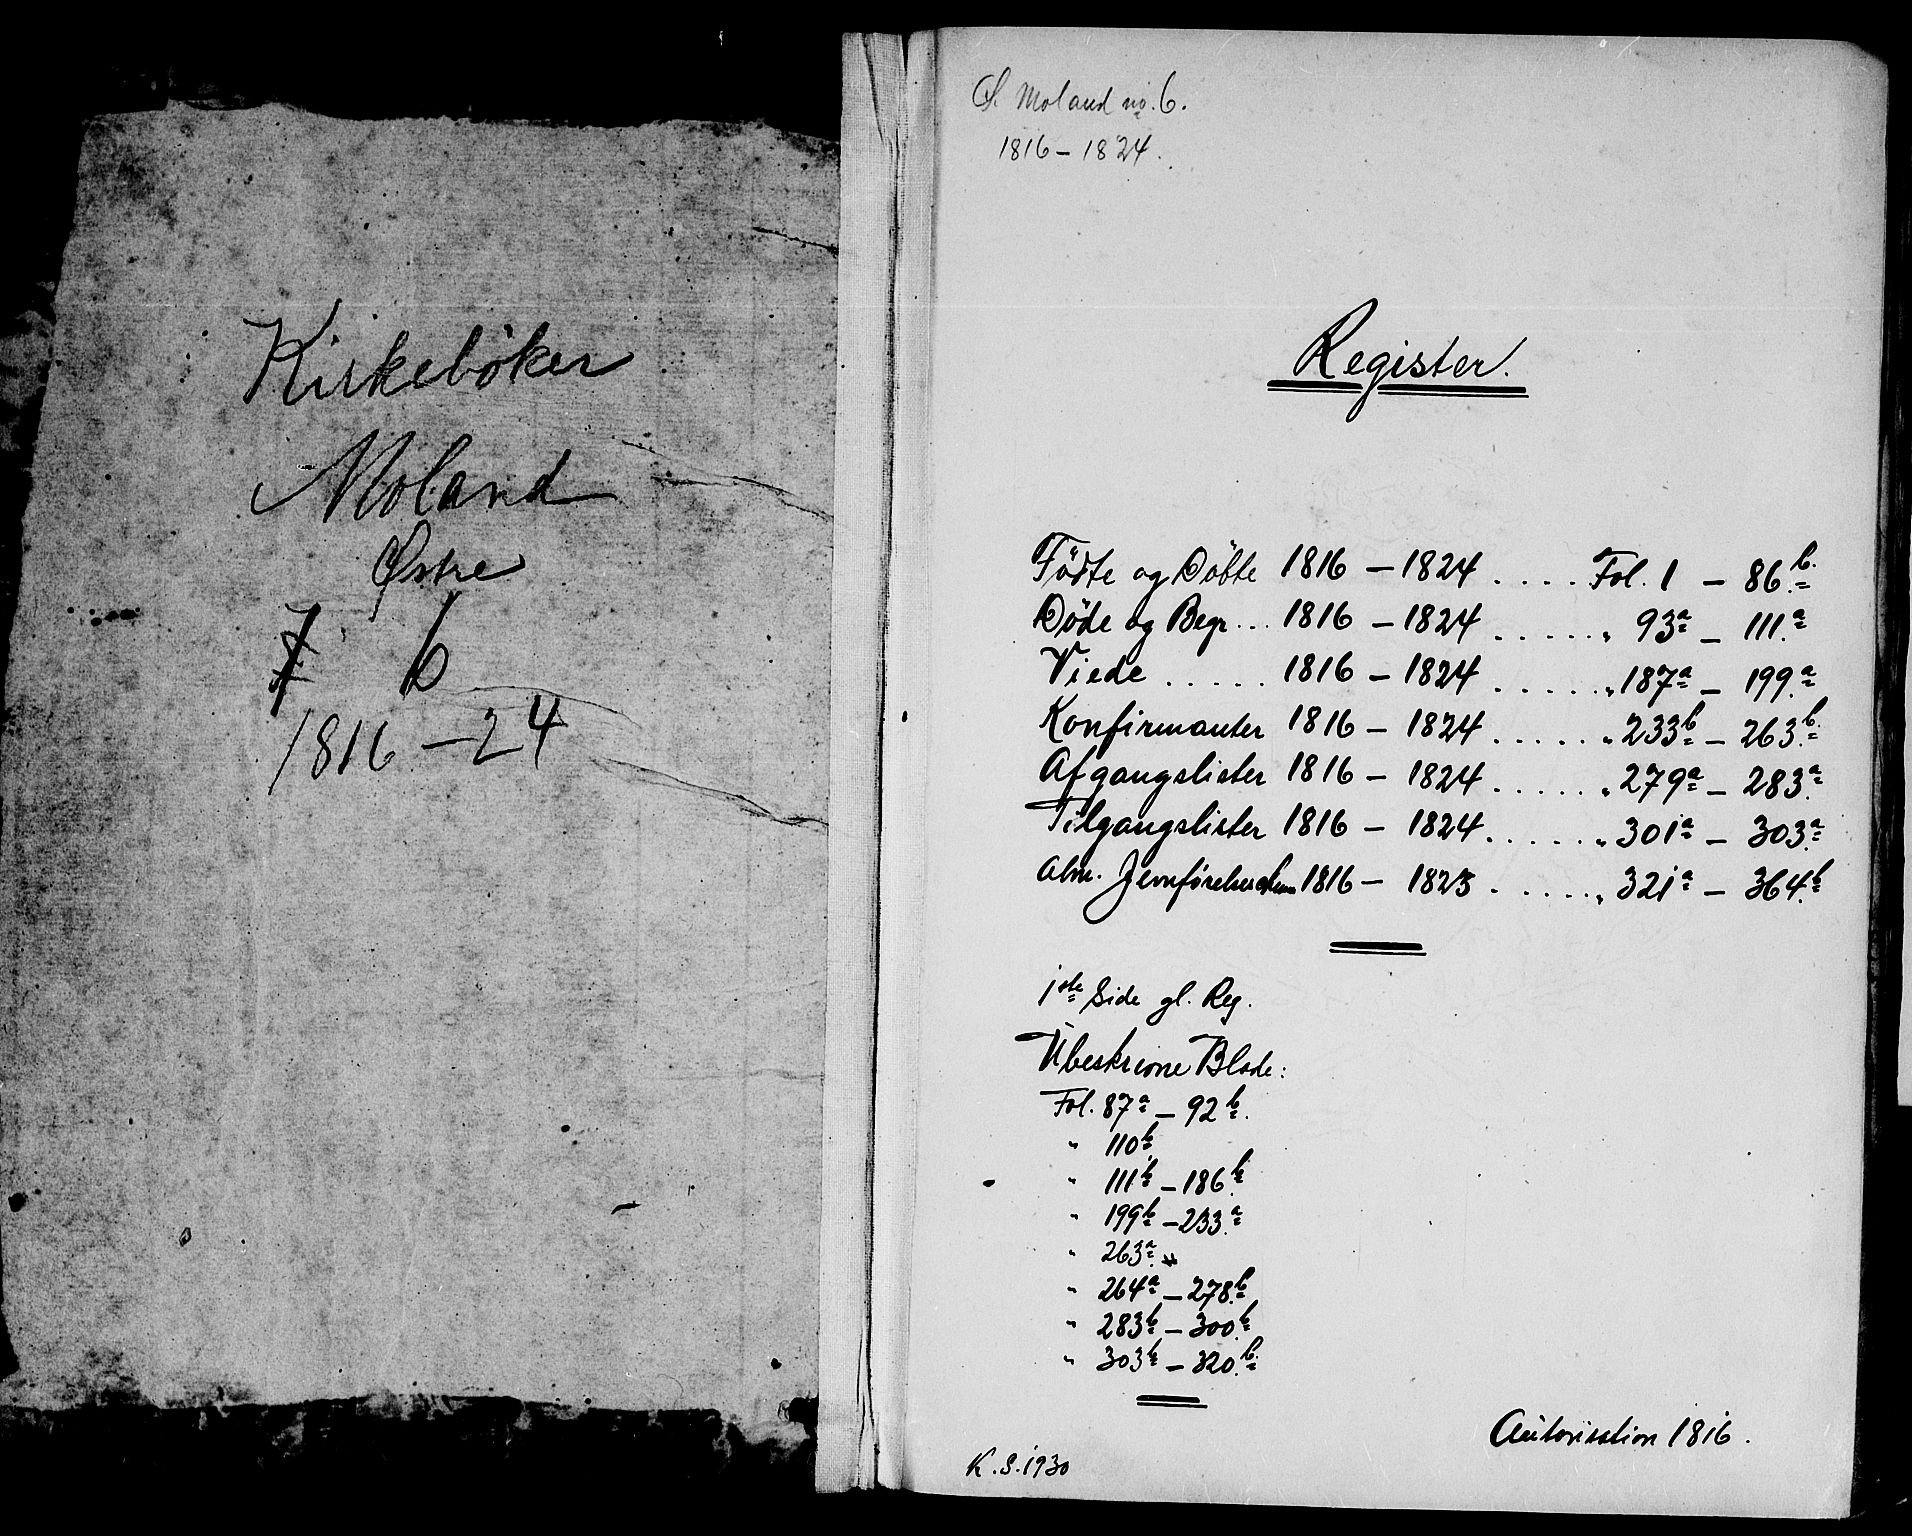 Kirkebøker
Moland
Østre
6
1816-24
Ø. Moland no. 6.
1816-1824.
Register.
Födte og Döbte 1816 - 1824 .... Fol. 1 - 86b.
Döde og Begr... 1816 - 1824 ..... " 93a - 111.a
Viede ..... 1816 - 1824 ..... " 187a - 199.a
Konfirmanter 1816 - 1824 ..... " 233b - 263b.
Afgangslister 1816 - 1824 ..... " 279a - 283.a
Tilgangslister 1816 - 1824 ..... " 301a - 303.a
Alm. Jevnförelses 1816 - 1823 ..... " 321a - 364.b
1ste Side gl. Reg.
Ubeskrevne Blade:
Fol. 87a - 92b.
" 110b.
" 111b - 186b.
" 199b - 233.a
" 263a.
" 264a - 278.b
" 283b - 300.b
" 303b - 320.b
Autorisation 1816.
K.S. 1930